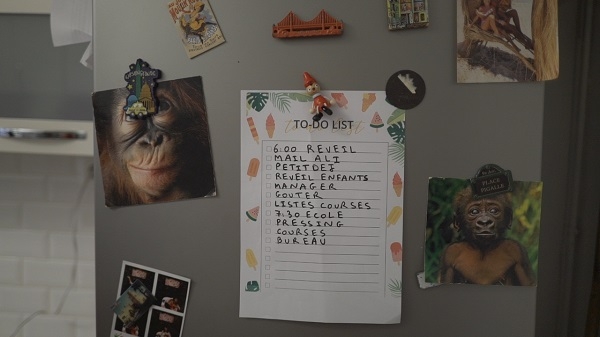 TO-DO LIST
6:00 REVEIL
MAIL ALI
PETITDEJ
REVEIL ENFANTS
MANAGER
GOUTER
LISTES COURSES
7:30 ECOLE
PRESSING
COURSES
BUREAU
PLACE